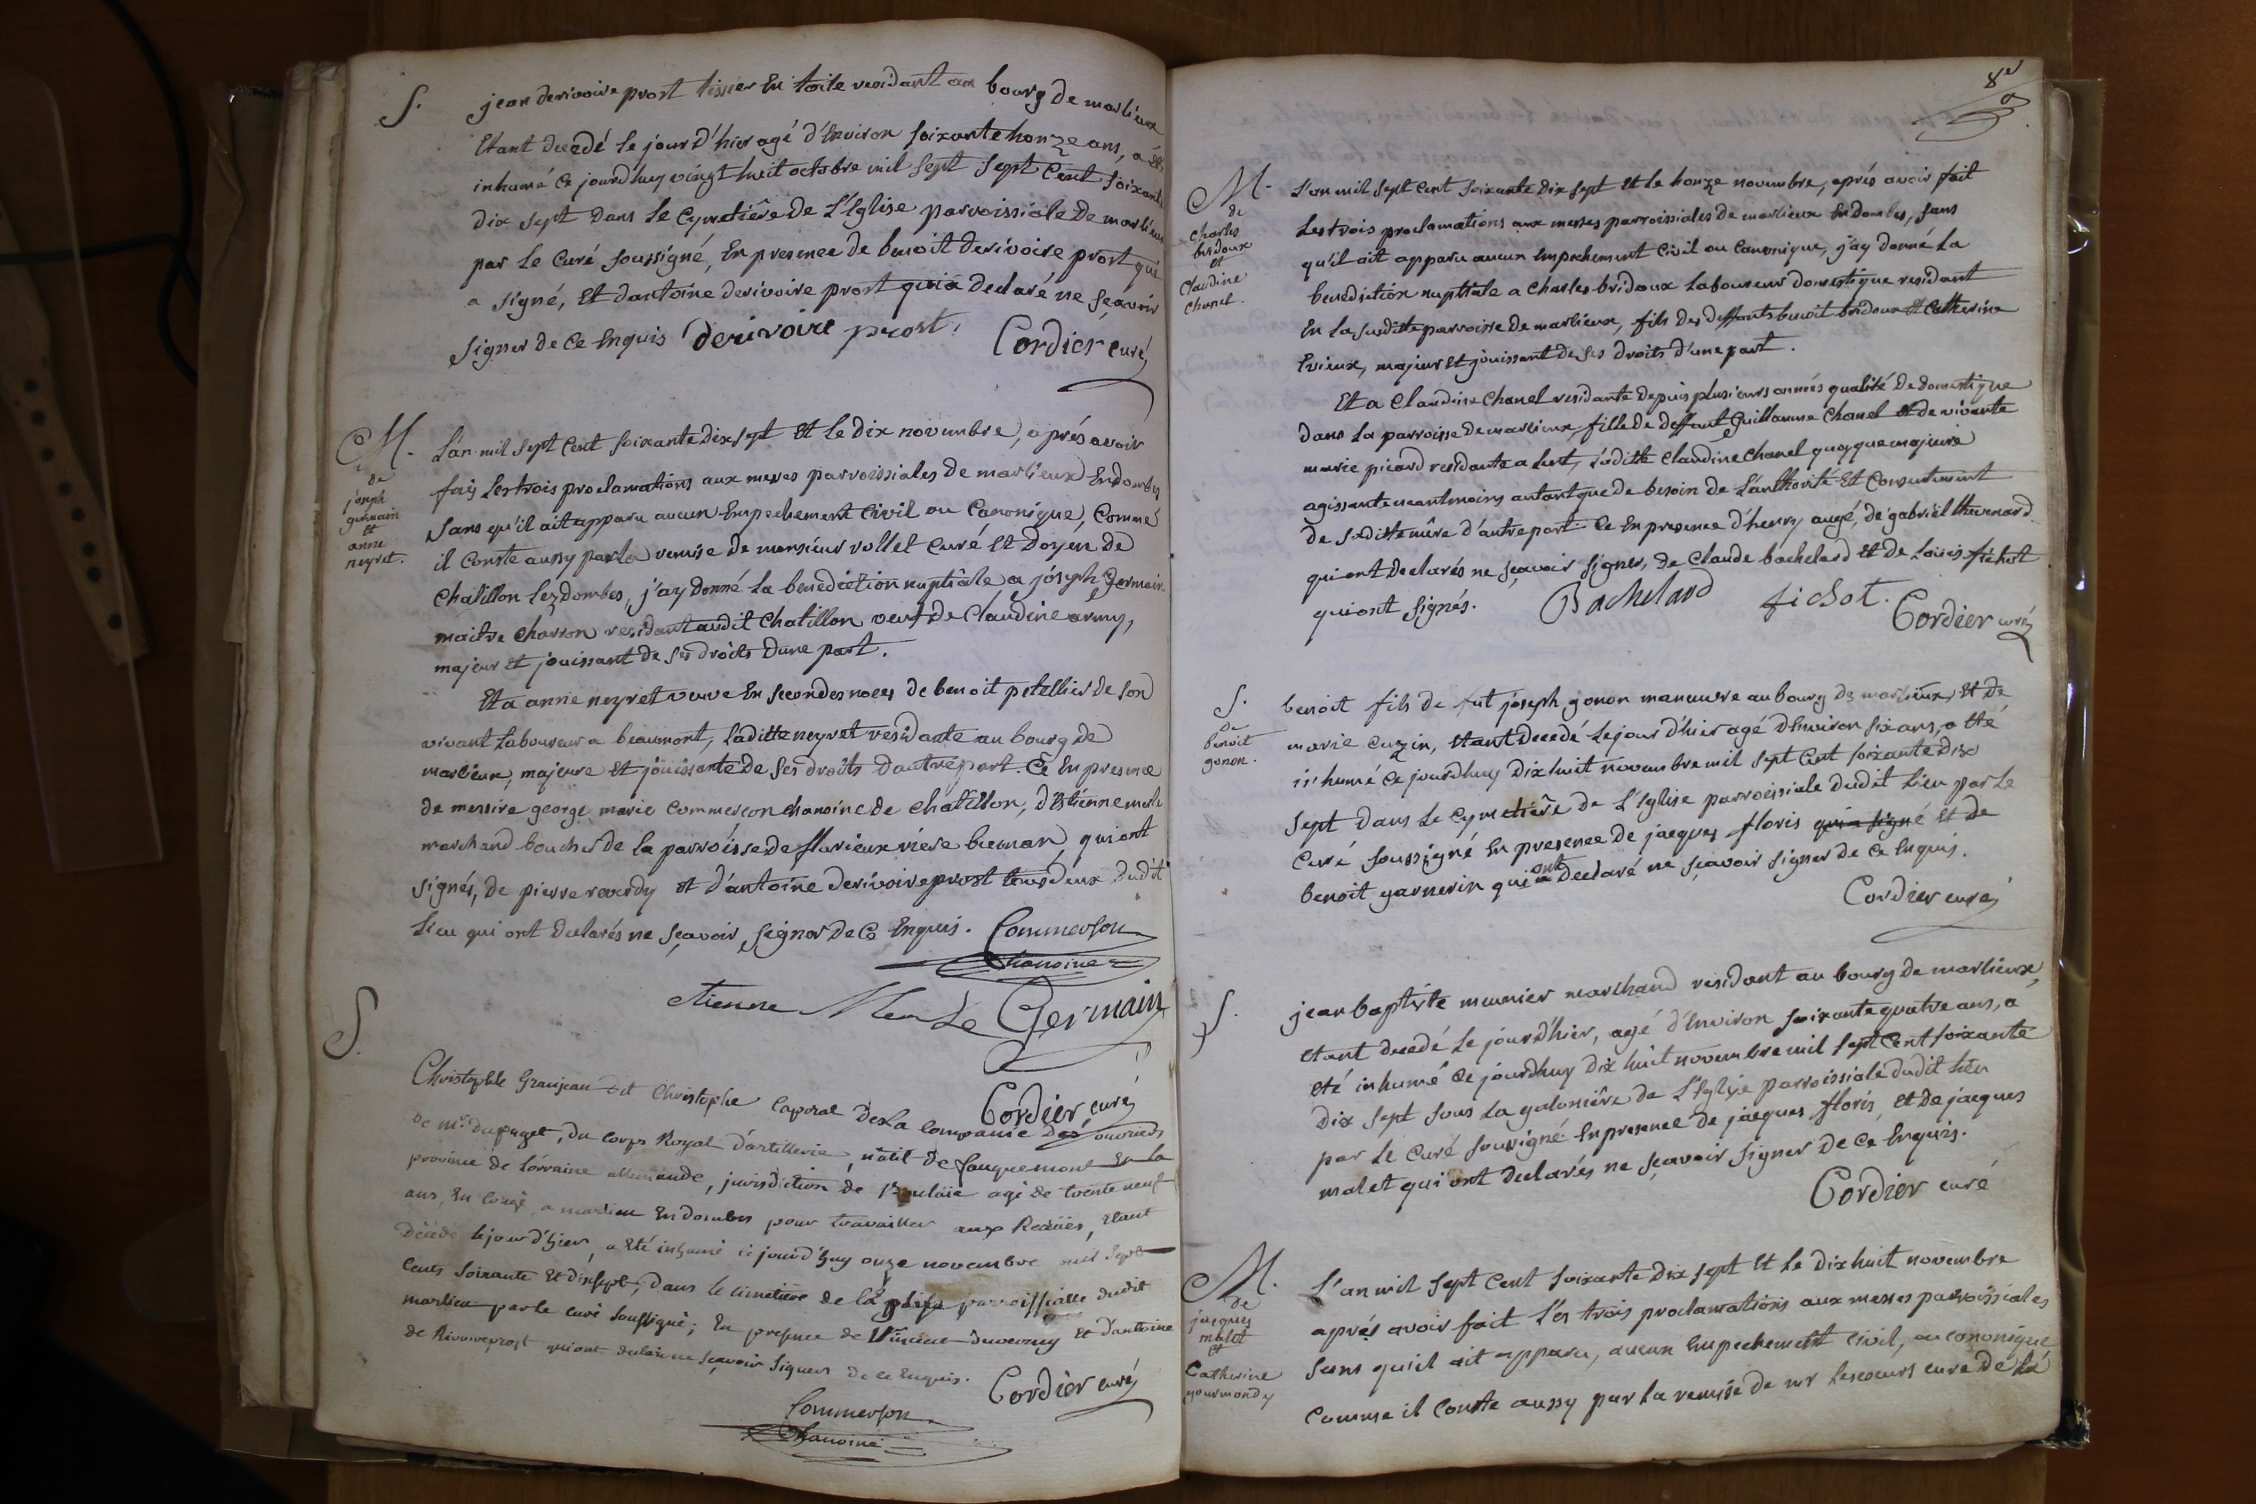 S. jean derivoire prost tissier En toile residant au bourg de marlieux
Etant decedé le jour d'hier agé d'Environ soixante honze ans, a été
inhumé ce jourd'huy vingt huit octobre mil sept sept cent soixante
dix sept dans le Cymetiêre de L'Eglise parroissiale de marlieux
par le Curé soussigné, En presence de benoit derivoire prost qui
a signé, Et d'antoine derivoire prost qui a declaré ne sçavoir
signer de ce Enquis derivoire prost. Cordier curé
M. de joseph germain et anne neyret.
L'an mil sept cent soixante dix sept Et le dix novembre, aprés avoir
fais les trois proclamations aux messes parroissiales de marlieux En dombes
sans qu'il ait apparu aucun Empechement Civil ou Canonique, Comme
il conste aussy par la remise de monsieur vollet curé Et Doyen de
Chatillon Lez dombes, j'ay donné la benediction nuptiâle a jóseph germain
maitre charron residant audit Chatillon veuf de Claudine army,
majeur et jouissant de ses droits d'une part.
Et a anne neyret veuve En secondes noces de benoit petellier de son
vivant Laboureur a beaumont, Laditte neyret residante au bourg de
marlieux, majeure Et jouissante de ses droits d'autre part. Ce En presence
de messire george marie commerson chanoine de chatillon, d'Etienne merle
marchand boucher de la parroisse de flurieux
signés, de pierre reverdy et d'antoine derivoire prost tous deux dudit
Lieu qui ont declarés ne sçavoir signer de Ce Enquis. Commerson
Chanoine
etienne Merle Germain
Cordier curé
S. Christophle Granjean dit Christophe Caporal de La Companie des ouvriers
de Mr. dupuget, du corps Royal d'artillerie, natif de fauquemont En la
province de Lorraine allemande, jurisdiction de agé de trente neuf
ans, En congé a marlieu En dombes pour travailler aux Etant
décédé le jour d'hier, a Eté inhumé ce jourd'huy onze novembre mil sept
cents soixante Et dixsept, dans le cimetiere de la parroissialle dudit
marlieu par le curé soussigné; En presence de Vincent duverney Et d'antoine
de Rivoireprost qui ont declaré ne sçavoir signer de ce Enquis.
Cordier curé
Commerson
Chanoine
8e
M. de Charles bridoux et Claudine Chanel.
L'an mil sept cent soixante dix sept Et le honze novembre, aprés avoir fait
Les trois proclamations aux messes parroissiales de marlieux En dombes, sans
qu'il ait apparu aucun Empechement Civil ou Canonique, j'ay donné La
benediction nuptiale a Charles bridoux Laboureur domestique residant
En La susditte parroisse de marlieux, fils des deffunts benoit bridoux Et Catherine
Evieux, majeur Et jouissant de ses droits d'une part.
Et a Claudine Chanel residante depuis plusieurs années qualité de domestique
dans La parroisse de marlieux, fille de deffunt Guillaume Chanel Et de vivante
marie picard residante a Lent, Laditte Claudine Chanel quoyque majeure
agissante neantmoins autant que de besoin de L'authorité Et Consentement
de saditte mêre d'autre part. Ce En presence d'henry augé, de gabriël thevenard
qui ont Declarés ne sçavoir signer, de Claude bachelard Et de Loüis fichot
qui ont signés. Bachelard fichot. Cordier curé
S. de benoit gonon.
benoit fils de fut joseph gonon manœuvre au bourg de marlieux, Et de
marie cuzin, Etant decedé Le jour d'hier agé d'Environ six ans, a Eté
inhumé ce jourdhuy Dix huit novembre mil sept Cent soixante dix
sept dans Le Cymetiêre de L'Eglise parroissiale dudit Lieu par Le
Curé soussigné En presence de jacques floris qui a signé Et de
benoit garnerin qui ont declaré ne sçavoir signer de ce Enquis.
Cordier curé
S. jean baptiste meunier marchand residant au bourg de marlieux,
Etant decedé Le jour d'hier, agé d'Environ soixante quatre ans, a
Eté inhumé ce jourdhuy Dix huit novembre mil sept Cent soixante
Dix sept sous La galoniêre de L'Eglise parroissiale dudit Lieu
par Le Curé sousigné En presence de jacques floris, Et de jacques
malet qui ont declarés ne sçavoir signer de Ce Enquis.
Cordier curé
M. de jacques malet et Catherine gourmondy
L'an mil sept Cent soixante Dix sept Et Le dix huit novembre
aprés avoir fait Les trois proclamations aux messes parroissiales
sans qu'il ait apparu, aucun Empechement Civil, ou canonique
Comme il Conste aussy par La remise de mr Lescoeurs curé de La